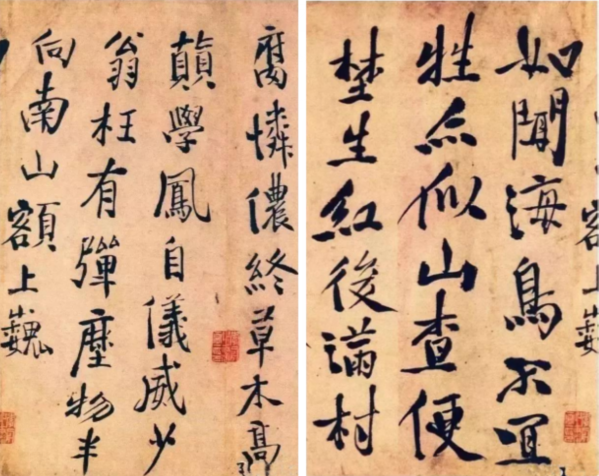 腐憐儂終草木高
顛學鳳自儀威少
翁枉有彈塵物半
向南山額上巍
如聞海鳥不宜
牲亦似山查便
埜生紅後滿村